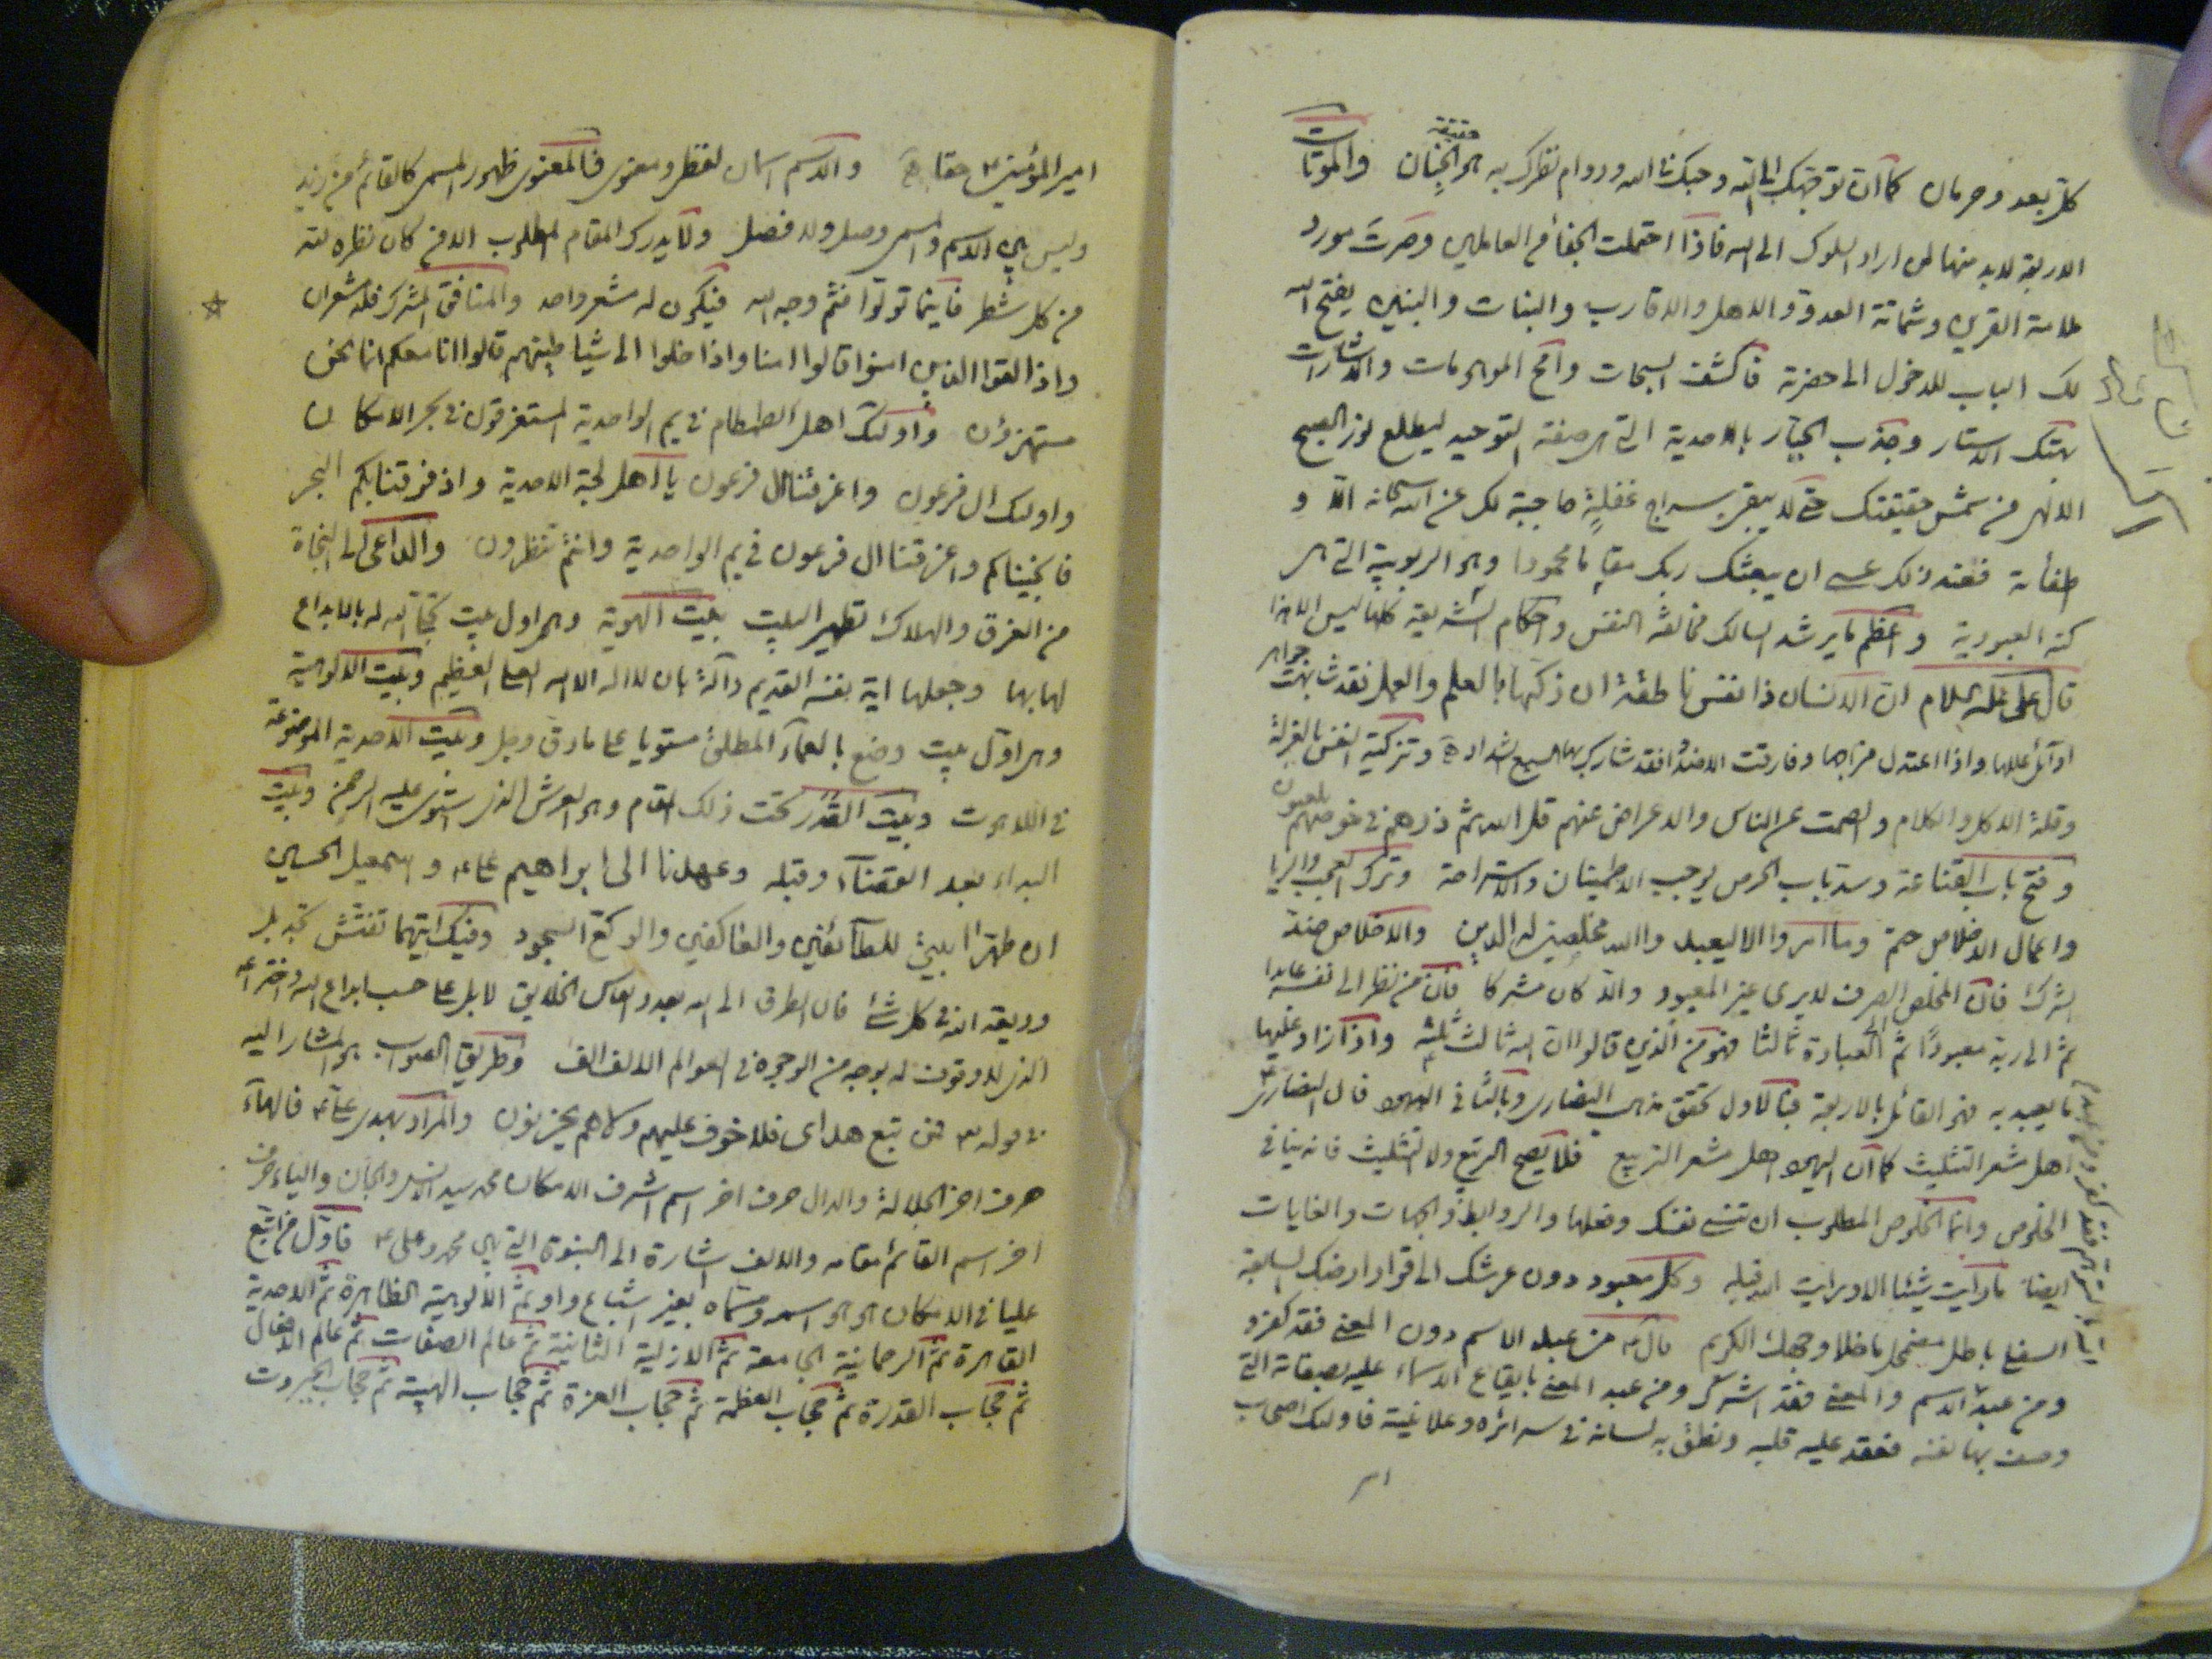 كل بعد وحرمان كما ان توجهك الى الله وحبك الله ودوام نظرك به هو حقيقة الجنان والموتات
الاربعة لابد منها لمن اراد السلوك الى الله فاذا احتملت الجفا من العالمين وصرت مورد
ملامة القريب وشماتة العدو والاهل والاقارب والبنات والبنين يفتح الله
لك الباب للدخول الى حضرته فاكشف السبحات وامح الموهومات والاشارات
بهتك الاستار وجذب الجبار بالاحدية التي هي صفة التوحيد ليطلع نور الصبح
الازهر من شمس حقيقتك حتى لا يبقى سراج غفلة حاجبة لك عن الله سبحانه الا و
اطفأته فعند ذلك عسى ان يبعثك ربك مقاما محمودا وهو الربوبية التي هي
كنه العبودية واعظم ما يرشد السالك مخالفة النفس واحكام الشريعة كلها ليس الا هذا
قال علي عليه السلام ان الانسان ذا نفس ناطقة ان زكيها بالعلم والعمل فقد شابهت جواهر
اوائل عللها واذا اعتدل مزاجها وفارقت الاضداد فقد شارك بها السبع الشداد وتزكية النفس بالعزلة
وقلة الاكل والكلام والصمت عن الناس والاعراض عنهم قل الله ثم ذرهم في خوضهم يلعبون
وفتح باب القناعة وسد باب الحرص يوجب الاطمينان والاستراحة وترك العجب والريا
واعمال الاخلاص حتم وما امروا الا ليعبدوا الله مخلصين له الدين والاخلاص ضده
الشرك فان المخلص الصرف لا يرى غير المعبود والا كان مشركا فان من نظر الى نفسه عابدا
ثم الى ربه معبودا ثم الى العبادة ثالثا فهو من الذين قالوا ان الله ثالث ثلثة واذا زاد عليها
ما يعبد به فهو القائل بالاربعة فبالاول تحقق مذهب النصارى وبالثاني اليهود فان النصارى
اهل مشعر التثليث كما ان اليهود اهل مشعر التربيع فلا يصح التربيع ولا التثليث فانه ينافي
الخلوص وانما الخلوص المطلوب ان تنسى نفسك وفعلها والروابط والجهات والغايات
ايضا ما رايت شيئا الا ورايت الله قبله وكل معبود دون عرشك الى قرار ارضك السابعة
السفلى باطل مضمحل ما خلا وجهك الكريم قال من عبد الاسم دون المعنى فقد كفر و
ومن عبد الاسم والمعنى فقد اشرك ومن عبد المعنى بايقاع الاسماء عليه بصفاته التي
وصف بها نفسه فعقد عليه قلبه ونطق به لسانه في سرائره وعلانيته فاولئك اصحاب
امير المؤمنين حقا والاسم اسمان لفظي ومعنوي فالمعنوي ظهور المسمى كالقائم من زيد
وليس بين الاسم والمسمى وصل ولا فصل ولا يدرك المقام المطلوب الا من كان نظره لله
من كل شطر فاينما تولوا فثم وجه الله فيكون له مشعر واحد والمنافق المشرك فله مشعران
واذا لقوا الذين امنوا قالوا امنا واذا خلوا الى شياطينهم قالوا انا معكم انما نحن
مستهزؤن واولئك اهل الطمطام في يم الواحدية المستغرقون في بحر الامكان
واولئك ال فرعون واغرقنا ال فرعون يا اهل لجة الاحدية واذ فرقنا بكم البحر
فانجيناكم واغرقنا ال فرعون في يم الواحدية وانتم تنظرون والداعي الى النجاة
من الغرق والهلاك تطهير البيت بيت الهوية وهو اول بيت تجلى الله له بالابداع
لها بها وجعلها اية نفسه القديم دالة بان لا اله الا الله العلي العظيم وبيت الالوهية
وهي اول بيت وضع بالعماء المطلق مستويا على ما دق وجل وبيت الاحدية الموضوعة
في اللاهوت وبيت القدر تحت ذلك المقام وهو العرش الذي استوى عليه الرحمن وبيت
البداء بعد القضاء وقبله وعهدنا الى ابراهيم واسمعيل الحسين
ان طهرا بيتي للطائفين والعاكفين والركع السجود وفيك ايتهما تفتش تجد بل
وديعة الله في كل شئ فان الطرق الى الله بعدد انفاس الخلايق لا بل على حسب ابداع الله واختراعه
الذي لا وقوف له بوجه من الوجوه في العوالم الالف الف وطريق الصواب هو المشار اليه
في قوله فمن تبع هداى فلا خوف عليهم ولا هم يحزنون والمراد بهدى علي فالهاء
حرف اخر الجلالة والدال حرف اخر اسم اشرف الامكان محمد سيد الانس والجان والياء حرف
اخر اسم القائم مقامه والالف اشارة الى البنوة التي بين محمد وعلي فاول من اتبع
عليا في الامكان هو هو اسمه ومسماه بغير اشباع واو ثم الالوهية الظاهرة ثم الاحدية
القاهرة ثم الرحمانية الجامعة ثم الازلية الثانية ثم عالم الصفات ثم عالم الافعال
ثم حجاب القدرة ثم حجاب العظمة ثم حجاب العزة ثم حجاب الهيبة ثم حجاب الجبروت